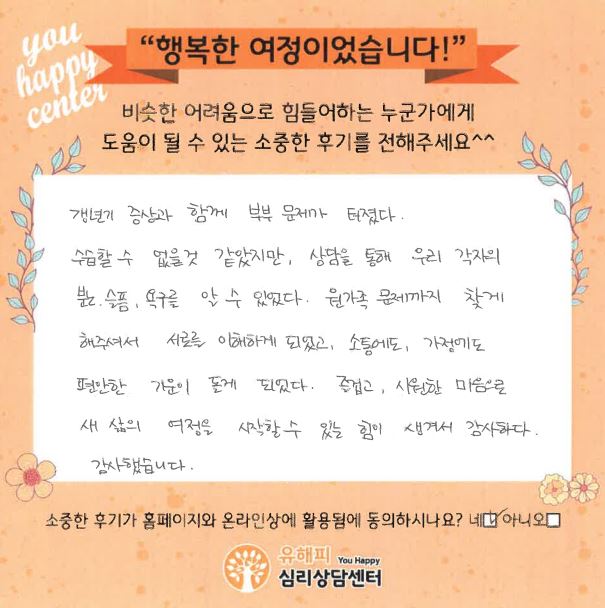 you
happy
center
“행복한 여정이었습니다!”
비슷한 어려움으로 힘들어하는 누군가에게
도움이 될 수 있는 소중한 후기를 전해주세요^^
갱년기 증상과 함께 부부 문제가 터졌다.
수습할 수 없을것 같았지만, 상담을 통해 우리 각자의
분노.슬픔, 욕구를 알 수 있었다. 원가족 문제까지 찾게
해주셔서 서로를 이해하게 되었고, 소통에도, 가정에도
편안한 기운이 돌게 되었다. 즐겁고, 시원한 마음으로
새 삶의 여정을 시작할 수 있는 힘이 생겨서 감사하다.
감사했습니다.
소중한 후기가 홈페이지와 온라인상에 활용됨에 동의하시나요? 네☑ 아니오☐
유해피 You Happy
심리상담센터